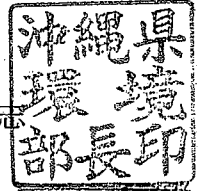 沖縄県
環境
部長印